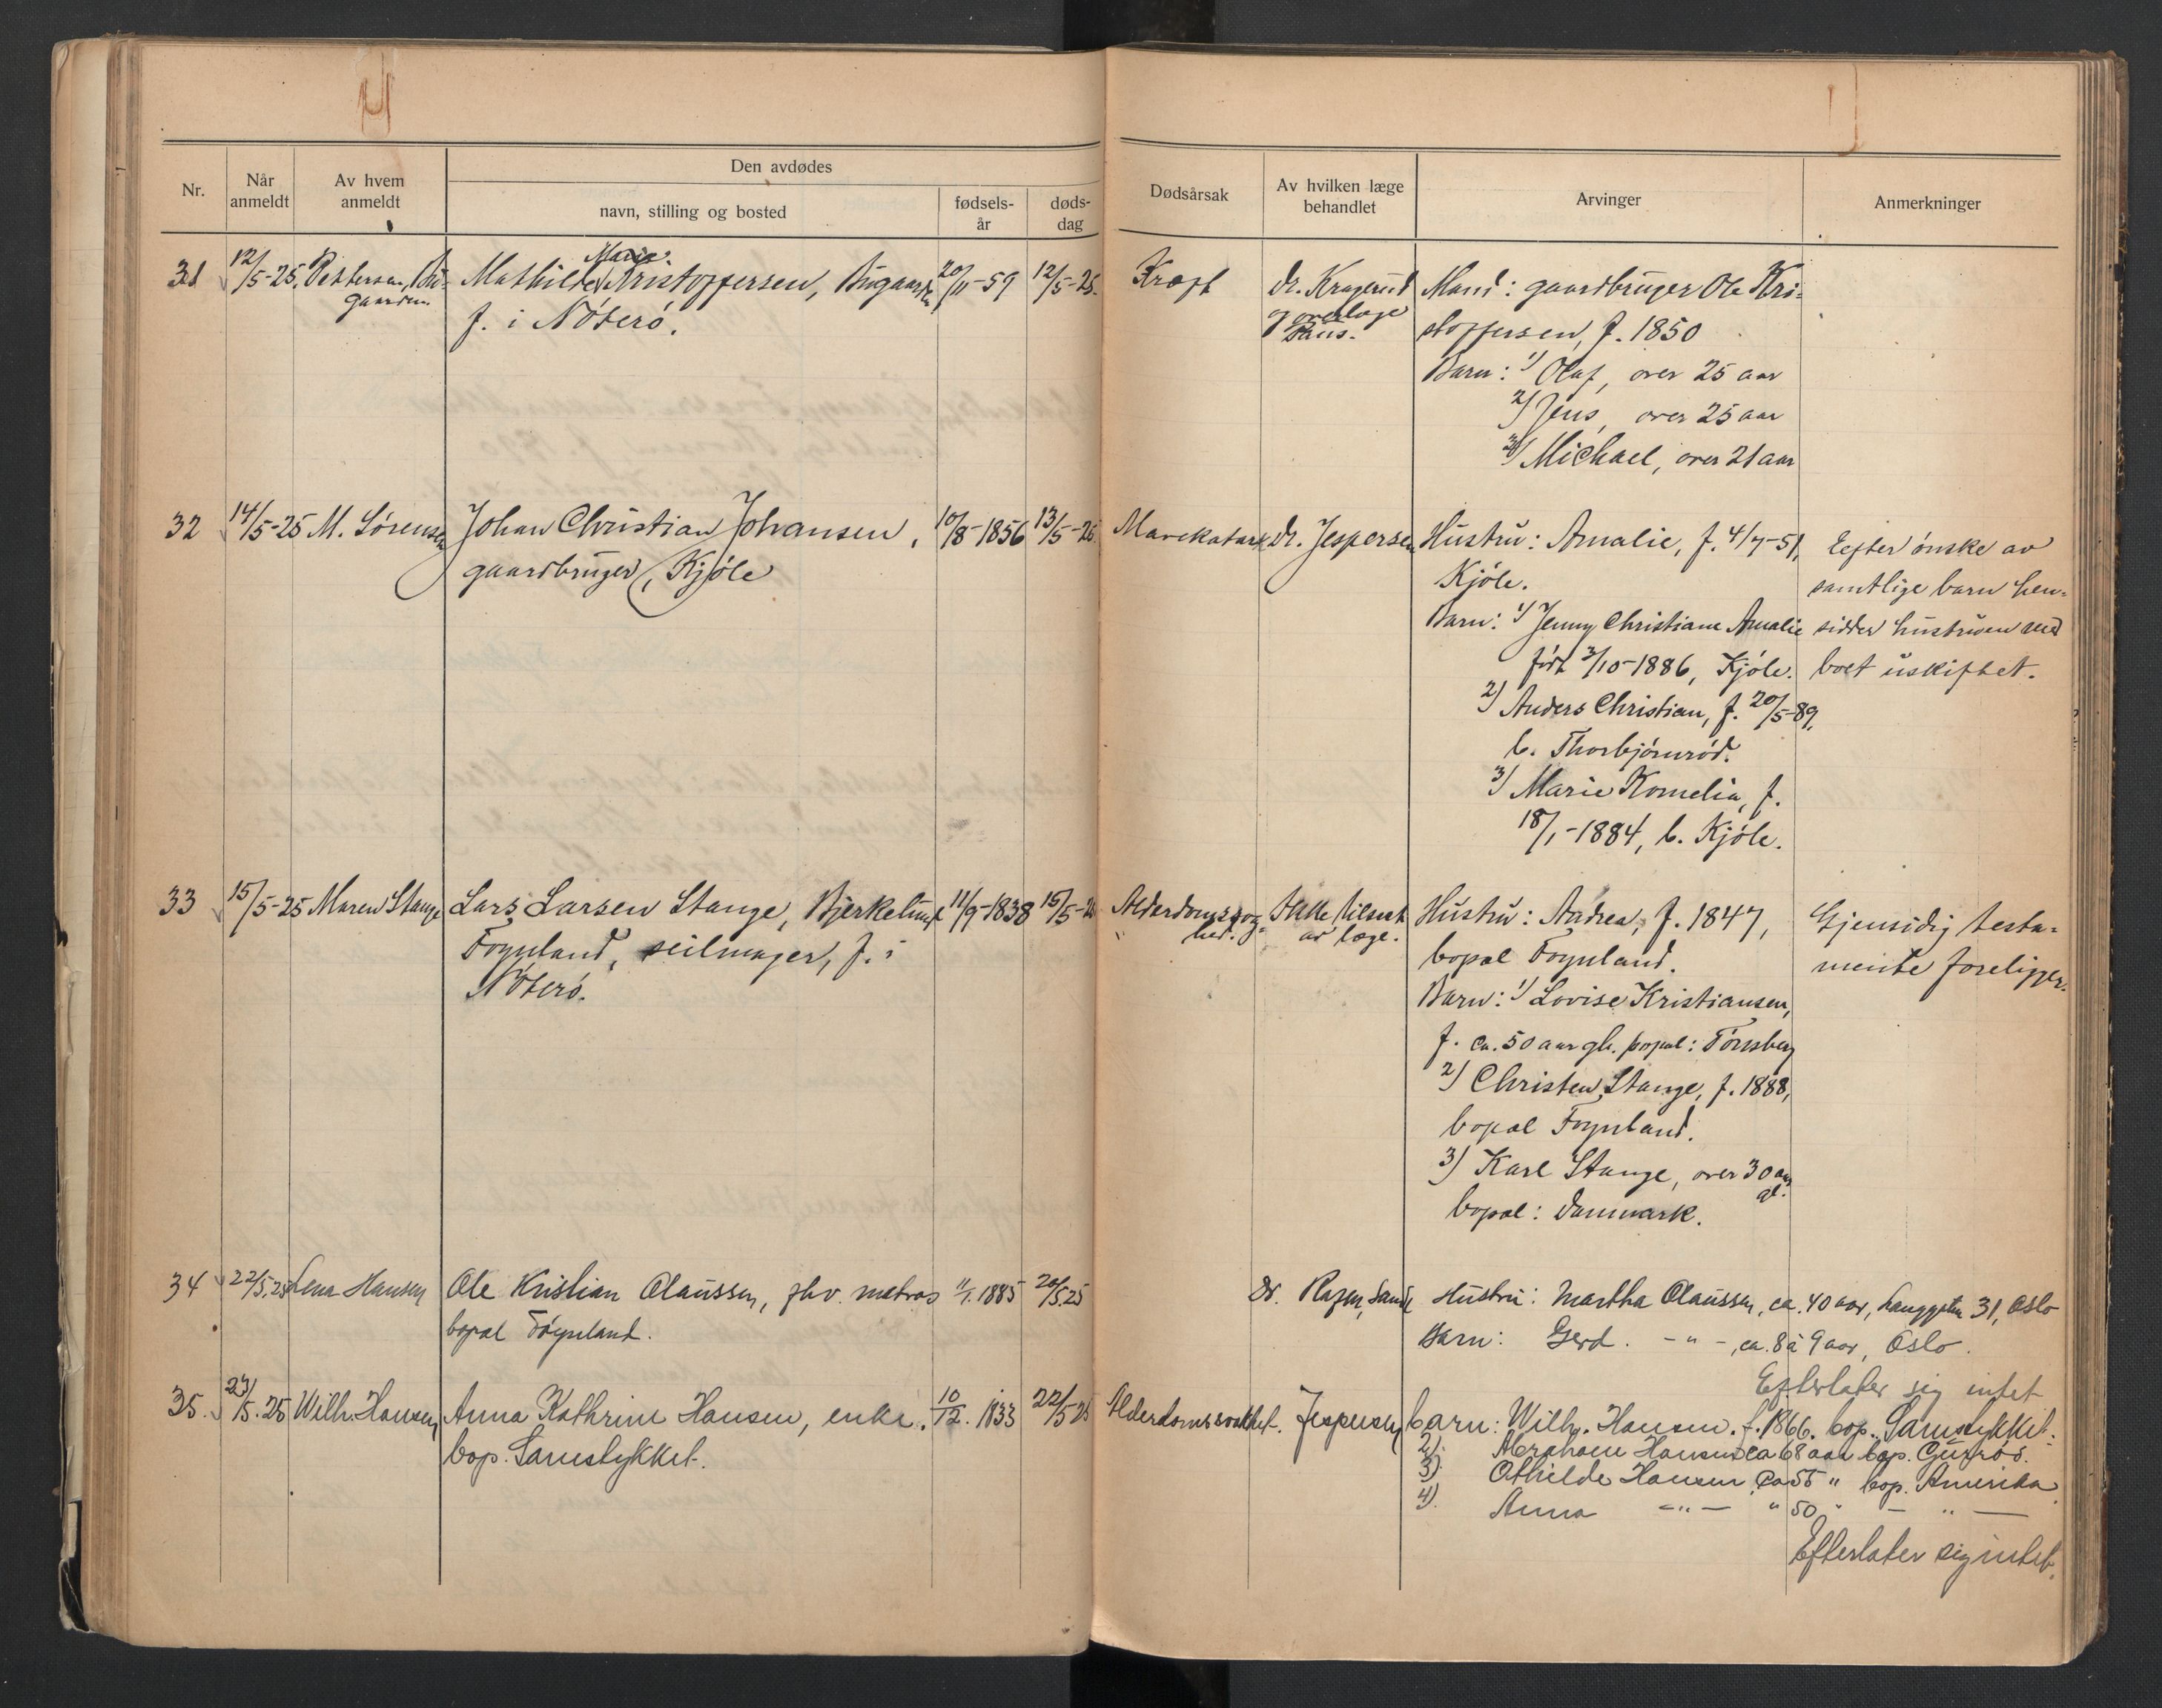 Nr.
Når anmeldt
Av hvem anmeldt
Den avdødes
navn, stilling og bosted
fødsels-år
døds-dag
Dødsårsak
Av hvilken læge behandlet
Arvinger
Anmerkninger
31 12/5-25. Pettersen, Bu- Mathilde Marie Kristoffersen, Bugaarden 20/11-59 12/5-25. Kræft dr. Kragerud Mand: gaardbruger Ole Kri-
gaarden. f. i Nøterø. og overlæge stoffersen, f. 1850
Paus.
Barn: 1) Olaf, over 25 aar
2) Jens, over 25 aar
3) Michael, over 21 aar
32 14/5-25 M. Sørensen Johan Christian Johansen, 10/8-1856 13/5-25. Mavekatarr dr. Jespersen Hustru: Amalie, f. 4/7-51, Eefter ønske av
gaardbruger, Kjøle Kjøle. samtlige barn hen-
Barn: 1) Jenny Christiane Amalie sidder hustruen med
født 3/10-1886, Kjøle. boet uskiftet.
2) Anders Christian, f. 20/5-89,
b. Thorbjørnrød.
3) Marie Kornelia, f.
18/1-1884, b. Kjøle.
33 15/5-25 Maren Stange Lars Larsen Stange, Bjerkelund 11/9-1838 15/5-25 Alderdomssvag- Ikke tilseet Hustru: Andrea, f. 1847, Gjensidig testa-
Føynland, seilmager, f. i hed. av læge. bopæl Føynland. mente foreligger.
Nøterø. Barn: 1) Lovise Kristiansen,
f. ca. 50 aar gl. bopæl: Tønsberg
2) Christen Stange, f. 1888,
bopæl Føynland.
3) Karl Stange, over 30 aar
gl.
bopæl: Danmark.
34 22/5.25 Lena Hansen Ole Kristian Olaussen, fhv. matros 11/1.1885 20/5.25 Dr. Sande Hustru: Martha Olaussen, ca. 40 aar, Langgaten 31, Oslo
bopæl Føynland. Barn: Gerd. -"-, ca. 8 à 9 aar, Oslo.
Efterlater sig intet
35. 23/5.25 Wilh. Hansen, Anna Kathrine Hansen, enke. 10/12. 1833 22/5-25 Alderdomssvakhet. Jespersen barn: Wilh. Hansen. f. 1866. bop. Sanestykket.
bop. Sanestykket. 2). Abraham Hansen ca 68 aar bop. Gunrød.
3). Othilde Hansen ca 55 " bop. Amerika
4). Anna -"- " 50 " - " -
Efterlater sig intet.